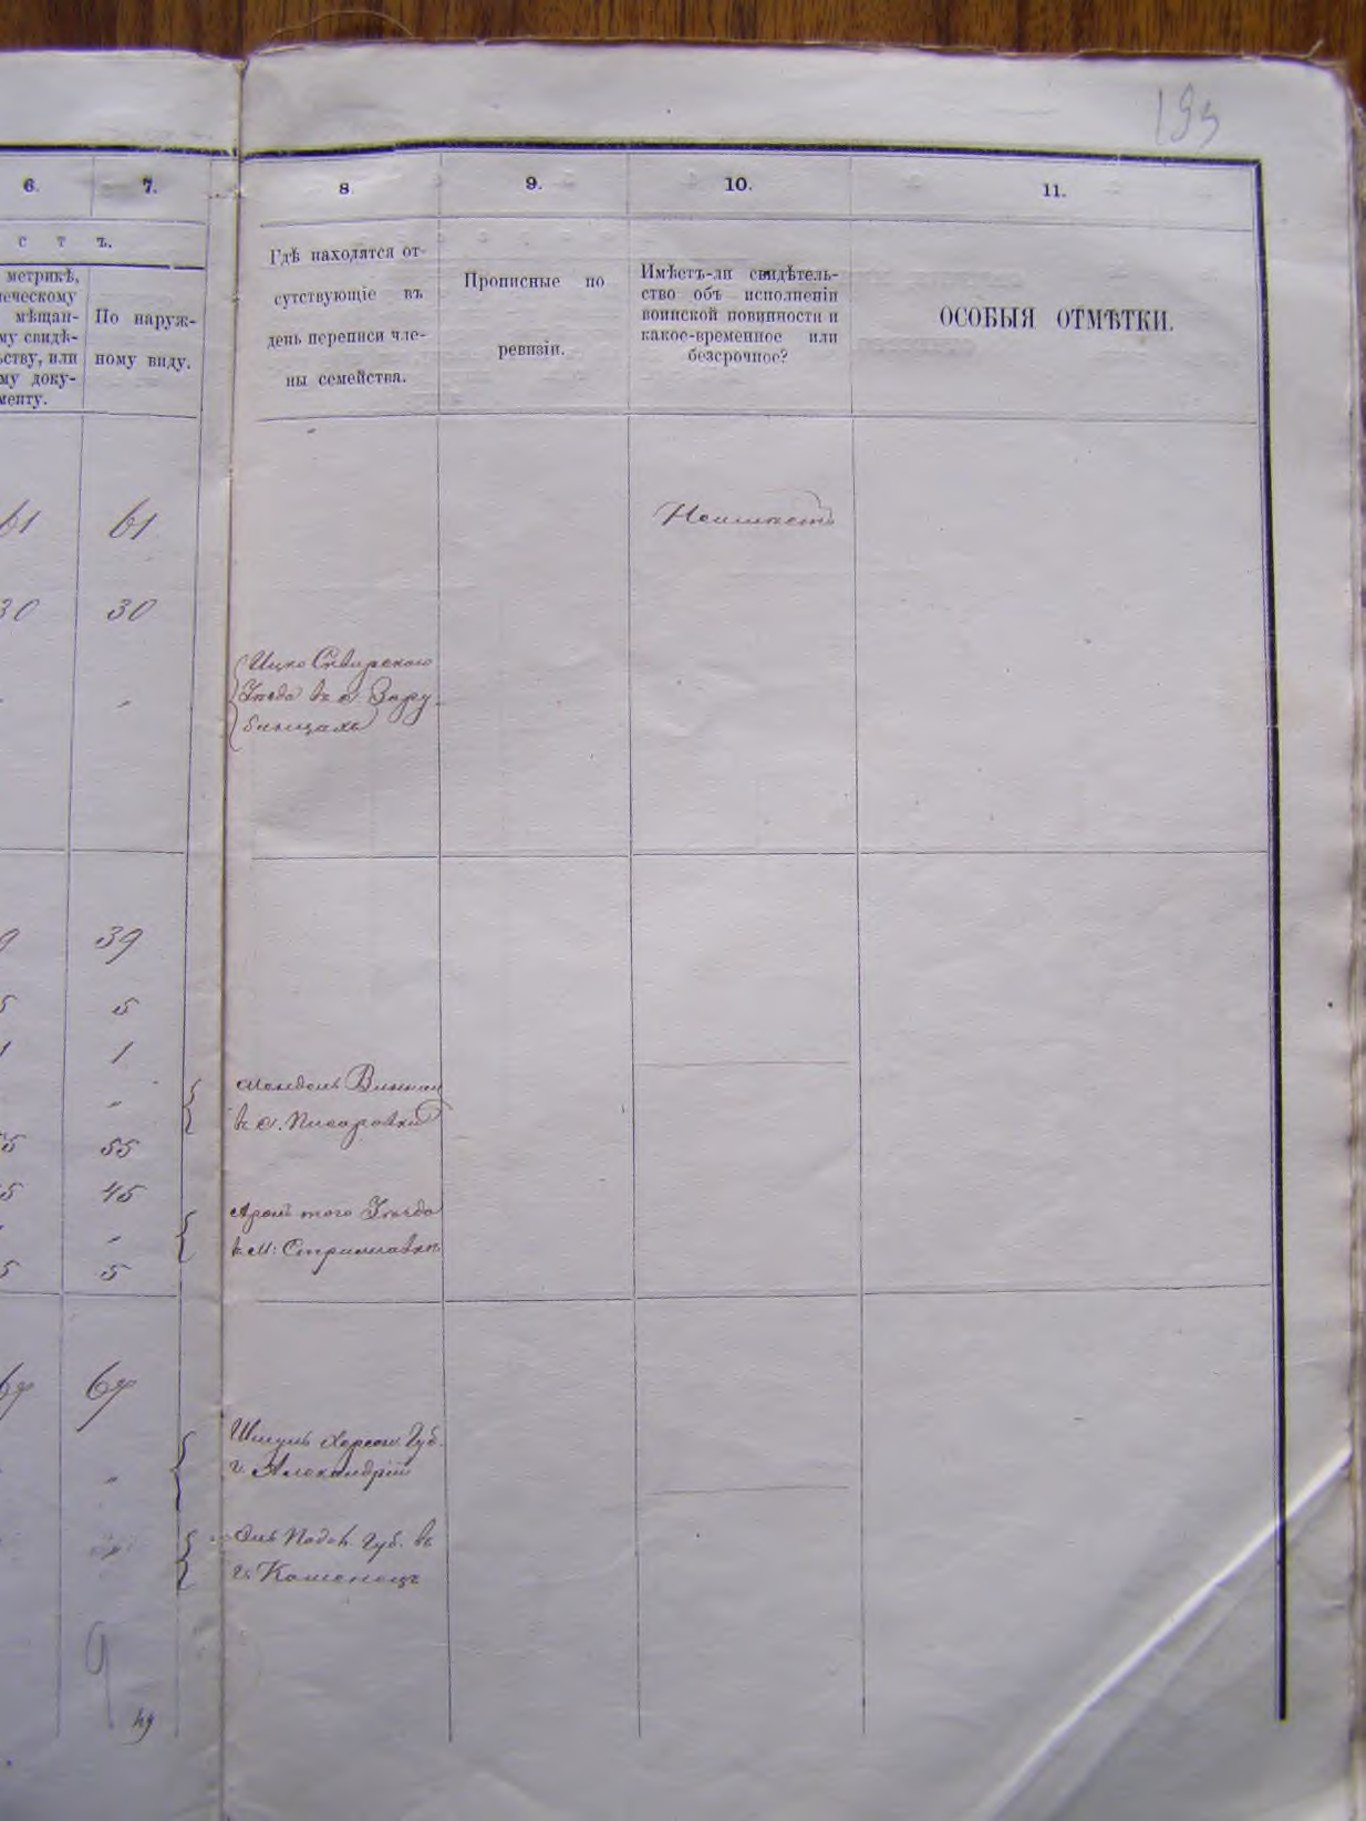 193
6. 7. 8 9. 10. 11.
с т ъ.
метрикѣ,
ческому
мѣщан-
му свидѣ-
ьству, или
му доку-
менту.
По наруж-
ному виду.
Гдѣ находятся от-
сутствующіе въ
день переписи чле-
ны семейства.
Прописные по
ревизіи.
Имѣетъ-ли свидѣтель-
ство объ исполненіи
воинской повинности и
какое-временное или
безсрочное?
ОСОБЫЯ ОТМѢТКИ.
61 61
Неимѣетъ
30 30
Ицко Сквирского
Уѣзда въ с Зару-
бинцахъ
9 39
5 5
1 1
Мендель Винниц
въ с. Писаровки
55 55
5 45
Аронъ того Уѣзда
въ М: Стрижавкѣ
5 5
67 67
Шмуль Херсон. Губ.
г. Александріи
Подол. Губ. въ
г. Каменецъ
9